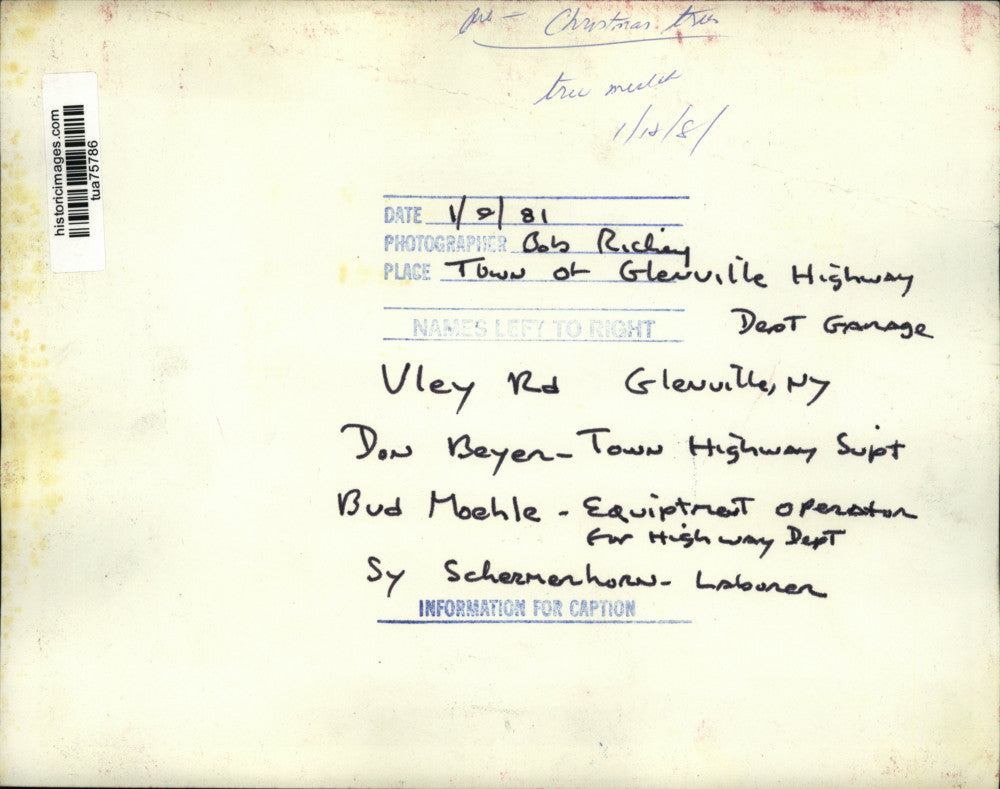 Christmas trees
tree
1/12/81
historicimages.com
tua75786
DATE 1/9/81
PHOTOGRAPHER Bob Richey
PLACE Town of Glenville Highway
Dept Garage
NAMES LEFT TO RIGHT
Vley Rd Glenville, NY
Don Beyer - Town Highway Supt
Bud Moehle - Equiptment operator
for Highway Dept
Sy Schermerhorn - Laborer
INFORMATION FOR CAPTION